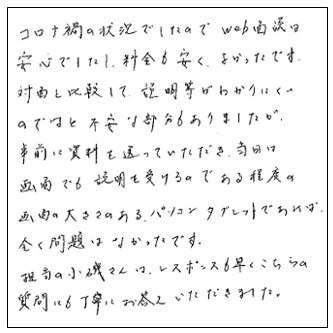 コロナ禍の状況でしたので web面談は
安心でしたし、料金も安く、よかったです。
対面と比較して、説明等がわかりにくい
のではと不安な部分もありましたが、
事前に資料を送っていただき、当日は
画面でも説明を受けるのである程度の
画面の大きさのある、パソコン タブレットであれば、
全く問題はなかったです。
担当の小磯さんは、レスポンスも早くこちらの
質問にも丁寧にお答えいただきました。